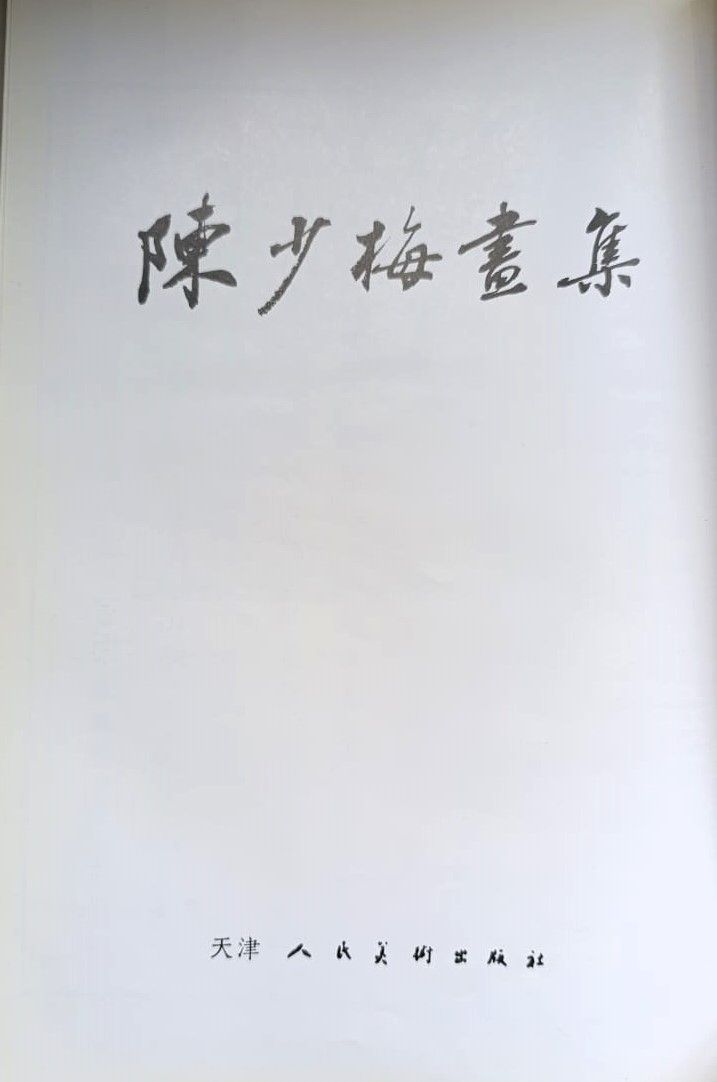 陳少梅畫集
天津 人民美術出版社